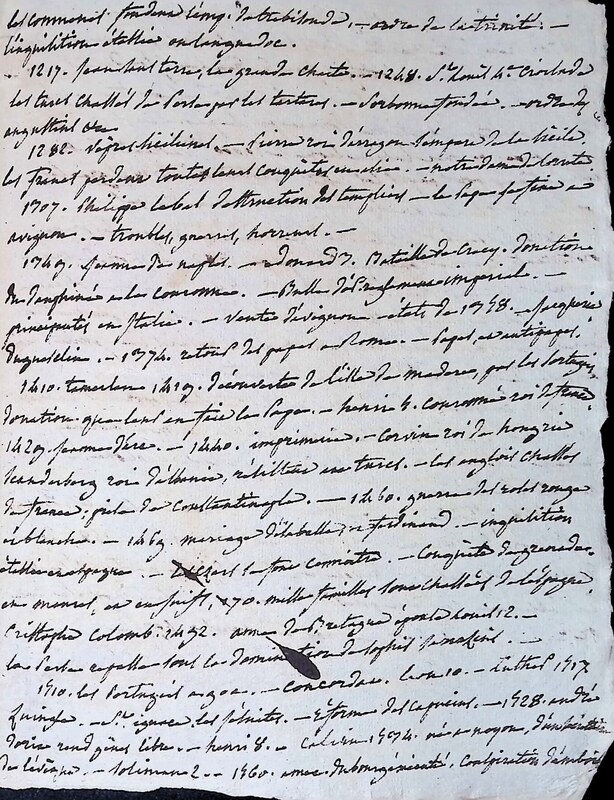 les comnenes, fondent l'emp. de trebisonde, — ordre de la trinité. —
l'inquisition établie en languedoc.
1217. jean sans terre, la grande charte. — 1248. St. Louis 4e croisade
les turcs chassés de Perse par les tartares. — Sorbonne fondée. — ordre des
augustins &c
1282. vepres siciliennes. — Pierre roi d'arragon s'empare de la Sicile
les francs perdent toutes leurs conquêtes en asie. — notre dame de lorette
1307. Philippe le bel destruction des templiers — le Pape se fixe a
avignon. — troubles, guerres, horreurs. —
1349. jeanne de naples. — edouard 3. Bataille de Crecy. donation
du dauphiné a la couronne. — Bulle d'or. imperial. —
principautés en Italie. — vente d'avignon — états de 1358. — jacquerie
duguesclin. — 1374. retour des papes a Rome. — Papes et antipapes.
1410. tamerlan 1419. découverte de l'isle de madere, par les Portugais,
donation que leur en fait le Pape. — henri 5. couronné roi de france
1429 jeanne d'arc. — 1440. imprimerie. — Corvin roi de hongrie
Scanderberg roi d'albanie, resistent aux turcs. — les anglois chassés
de france; prise de Constantinople. — 1460. guerre des roses rouge
et blanche. — 1469. mariage d'isabelle et ferdinand. — inquisition
établie en espagne. — se font connoitre. — Conquête de grenade.
en maures, et en juifs, 170. mille familles sont chassées de l'espagne
Cristophe Colomb. 1492. anne de Bretagne épouse louis 12. —
la Perse repasse sous la domination de sophis. —
1510. les Portugais a goa. — Concordat. leon 10. — Luther 1517
Zuingle. — St. ignace, les jésuites. — Réforme des capucins. — 1528. andré
doria rend gênes libre. — henri 8. — Calvin 1534. né a noyon,
de l'évêque. — soliman 2. — 1560. anne dubourg Conspiration d'amboise